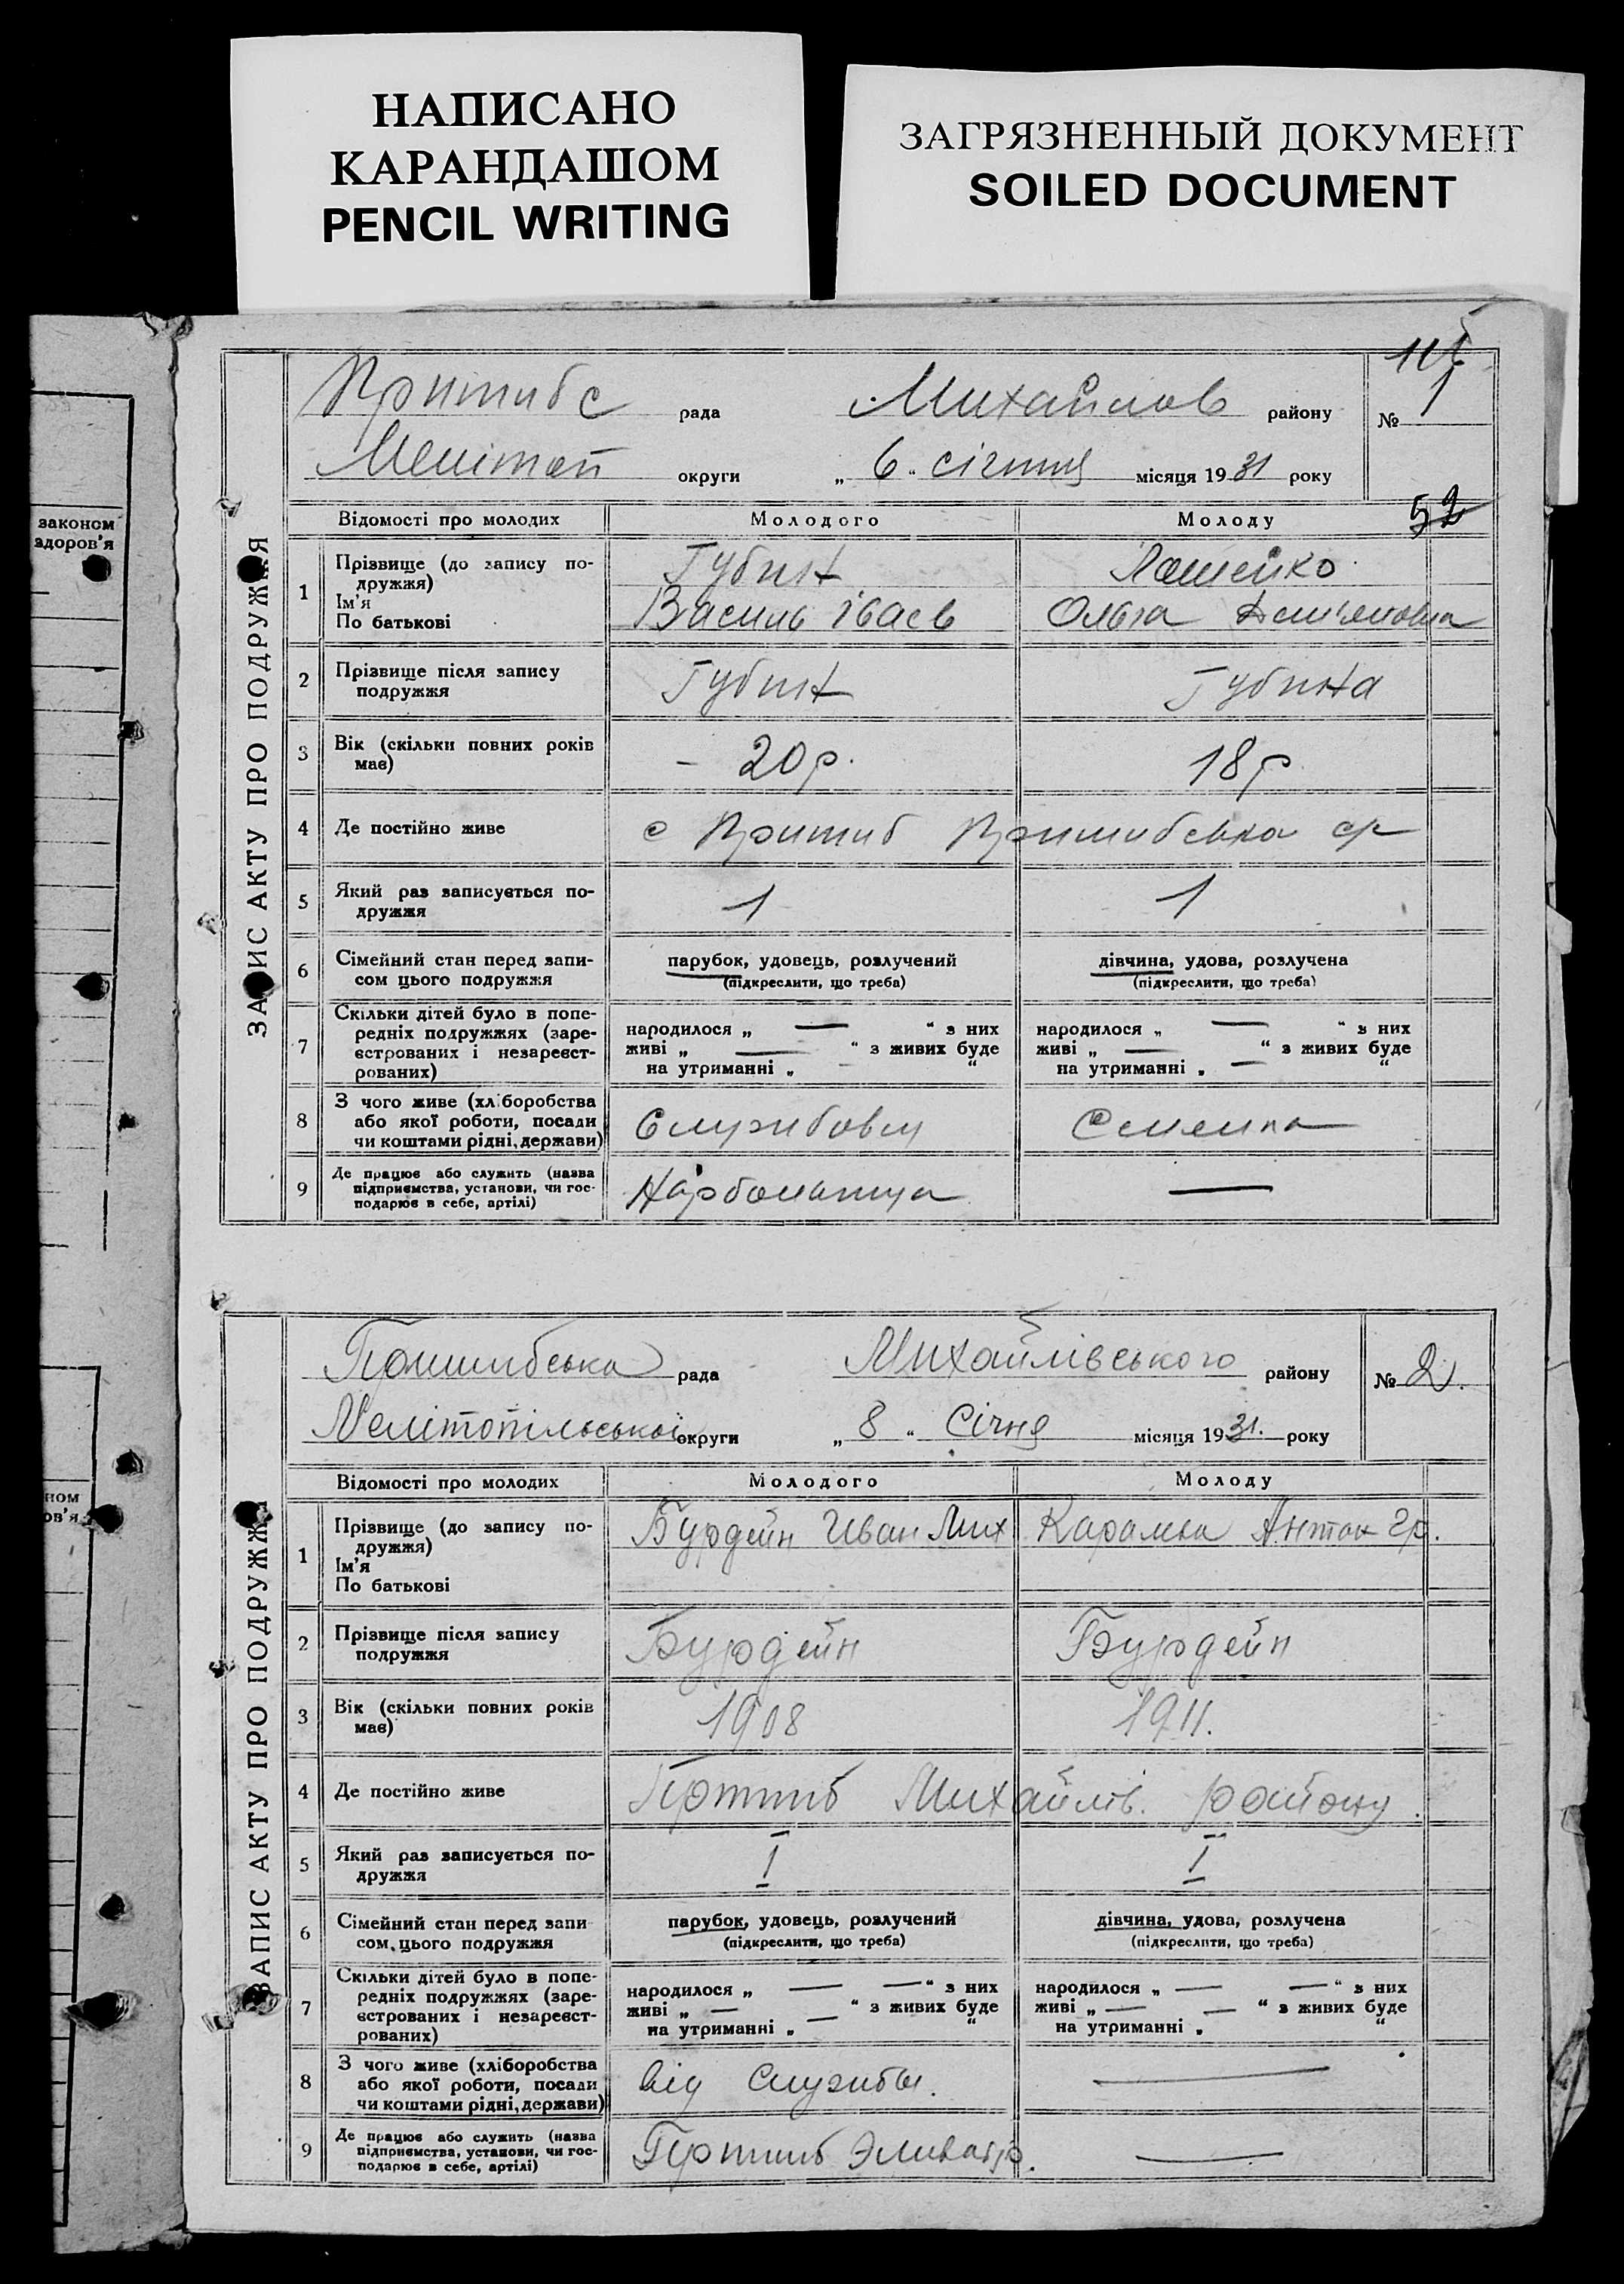 НАПИСАНО
КАРАНДАШОМ
PENCIL WRITING
ЗАГРЯЗНЕННЫЙ ДОКУМЕНТ
SOILED DOCUMENT
законом
здоров'я
ЗАПИС АКТУ ПРО ПОДРУЖЖЯ
рада Михайлов району № 1
Меліт округи „ 6 " січня місяця 1931 року
52
Відомості про молодих Молодого Молоду
1 Прізвище (до запису по-
дружжя)
Ім'я
По батькові
Губин
Василь Іваев
Лашенко
Ольга
2 Прізвище після запису
подружжя
Губин Губина
3 Вік (скільки повних років
має)
– 20 р. 18 р
4 Де постійно живе
с Пришиб Пришибська ср
5 Який раз записується по-
дружжя
1 1
6 Сімейний стан перед запи-
сом цього подружжя
парубок, удовець, розлучений
(підкреслити, що треба)
дівчина, удова, розлучена
(підкреслити, що треба)
7 Скільки дітей було в попе-
редніх подружжях (заре-
єстрованих і незареєст-
рованих)
народилося „ — " з них
живі „ — " з живих буде
на утриманні „ – "
народилося „ — " з них
живі „ — " з живих буде
на утриманні „ — "
8 З чого живе (хліборобства
або якої роботи, посади
чи коштами рідні, держави)
9 Де працює або служить (назва
підприємства, установи, чи гос-
подарює в себе, артілі)
—
ном
ов'я
ЗАПИС АКТУ ПРО ПОДРУЖЖЯ
Пришибська рада Михайлівського району № 2.
Мелітопільської округи „ 8 " Січня місяця 1931. року
Відомості про молодих Молодого Молоду
1 Прізвище (до запису по-
дружжя)
Ім'я
По батькові
Бурдейн Иван Мих Антон Гр.
2 Прізвище після запису
подружжя
Бурдейн Бурдейн
3 Вік (скільки повних років
має)
1908 1911.
4 Де постійно живе
Пришиб Михайлів. району.
5 Який раз записується по-
дружжя
I I
6 Сімейний стан перед запи-
сом цього подружжя
парубок, удовець, розлучений
(підкреслити, що треба)
дівчина, удова, розлучена
(підкреслити, що треба)
7 Скільки дітей було в попе-
редніх подружжях (заре-
єстрованих і незареєст-
рованих)
народилося „ — — " з них
живі „ — " з живих буде
на утриманні „ — "
народилося „ — — " з них
живі „ — — " з живих буде
на утриманні „ "
8 З чого живе (хліборобства
або якої роботи, посади
чи коштами рідні, держави)
від службы. —
9 Де працює або служить (назва
підприємства, установи, чи гос-
подарює в себе, артілі)
Пришиб —